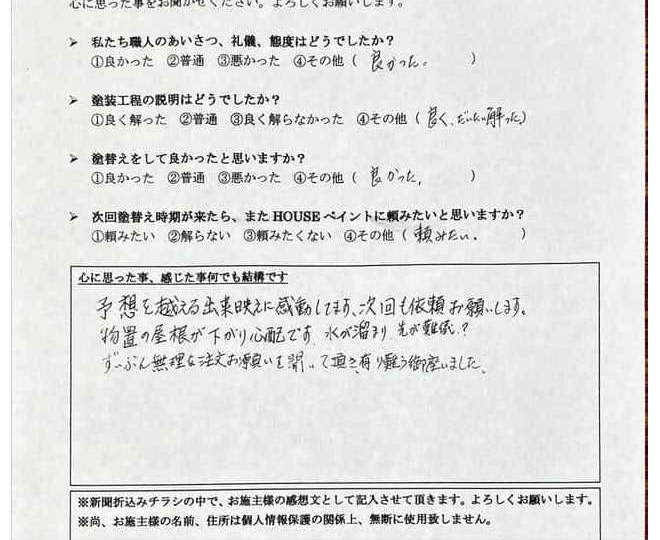 心に思った事をお聞かせください。よろしくお願いします。
➤ 私たち職人のあいさつ、礼儀、態度はどうでしたか？
①良かった ②普通 ③悪かった ④その他（ 良かった。 ）
➤ 塗装工程の説明はどうでしたか？
①良く解った ②普通 ③良く解らなかった ④その他（ 良く、だいたい解った。）
➤ 塗替えをして良かったと思いますか？
①良かった ②普通 ③悪かった ④その他（ 良かった。 ）
➤ 次回塗替え時期が来たら、また HOUSE ペイントに頼みたいと思いますか？
①頼みたい ②解らない ③頼みたくない ④その他（ 頼みたい。 ）
心に思った事、感じた事何でも結構です
予想を越える出来映えに感動してます、次回も依頼お願いします。
物置の屋根が下がり心配です 水が溜まり 先が難儀？
ずいぶん無理な注文お願いを聞いて頂き有り難う御座いました。
※新聞折込みチラシの中で、お施主様の感想文として記入させて頂きます。よろしくお願いします。
※尚、お施主様の名前、住所は個人情報保護の関係上、無断に使用致しません。